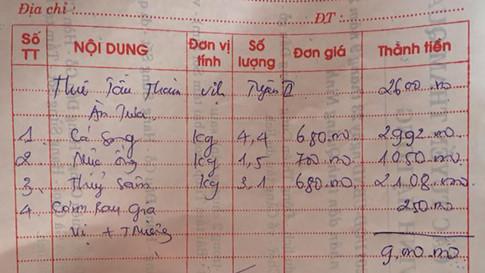 Địa chỉ: ĐT:
Số TT NỘI DUNG Đơn vị tính Số lượng Đơn giá Thành tiền
Thuê Tàu Tham Vịnh Tuyến II 2600.000
Ăn Trưa
1 Cá Song Kg 4,4 680.000 2992.000
2 Mực ống Kg 1,5 700.000 1050.000
3 Kg 3,1 680.000 2108.000
4 Cơm Rau Gia 250.000
Vị +
9.000.000